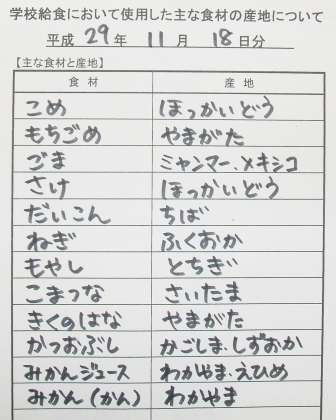 学校給食において使用した主な食材の産地について
平成 29 年 11 月 18 日分
【主な食材と産地】
食材 産地
こめ ほっかいどう
もちごめ やまがた
ごま ミャンマー、メキシコ
さけ ほっかいどう
だいこん ちば
ねぎ ふくおか
もやし とちぎ
こまつな さいたま
きくのはな やまがた
かつおぶし かごしま、しずおか
みかんジュース わかやま、えひめ
みかん(かん) わかやま